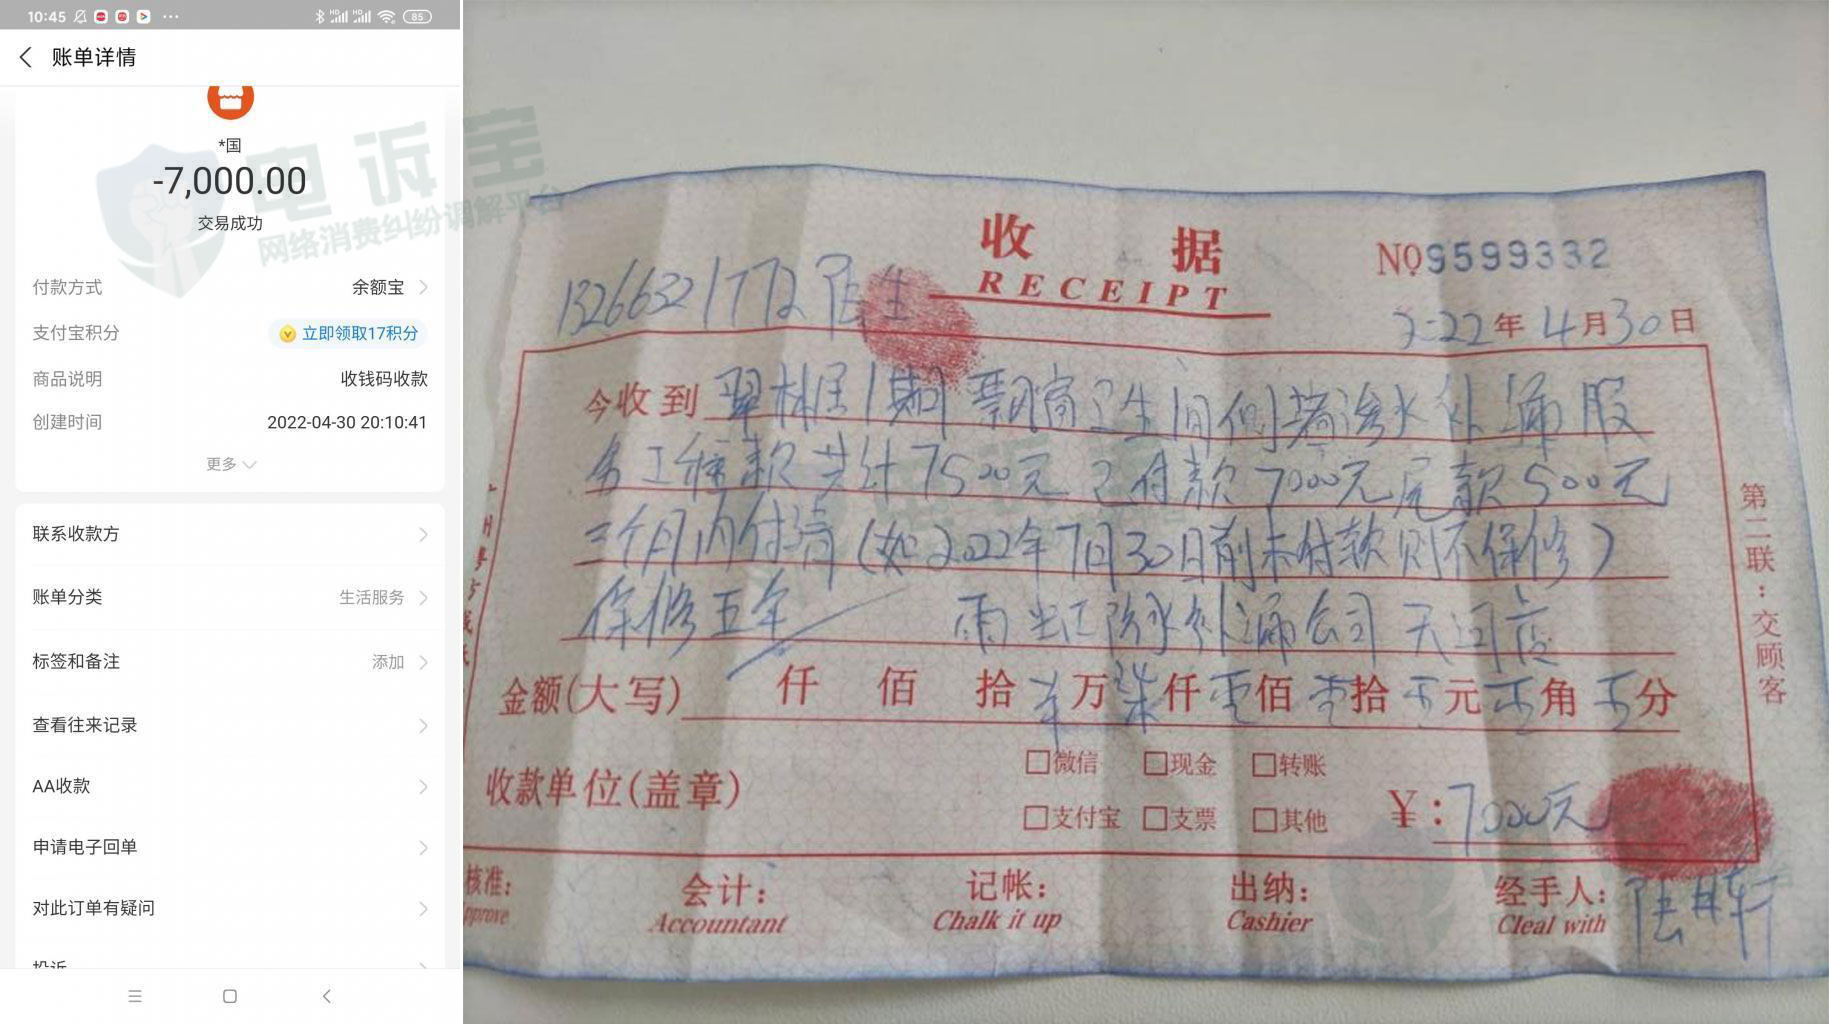 10:45
85
账单详情
*国
-7,000.00
交易成功
付款方式 余额宝
支付宝积分 立即领取17积分
商品说明 收钱码收款
创建时间 2022-04-30 20:10:41
更多
联系收款方
账单分类 生活服务
标签和备注 添加
查看往来记录
AA收款
申请电子回单
对此订单有疑问
投诉
电诉宝
网络消费纠纷调解平台
收据
RECEIPT
NO 9599332
13266321772 陆生
2022年4月30日
今收到 翠林居1期 飘窗卫生间侧墙渗水补漏服
务工程款共计7500元 已付款7000元尾款500元
三个月内付清(如2022年7月30日前未付款则不保修)
保修五年 雨 防水补漏公司 天河店
金额(大写) 仟 佰 拾 万柒仟零佰零拾 元 角 分
收款单位(盖章)
微信 现金 转账
支付宝 支票 其他
¥:7000元
第二联:交顾客
核准: 会计: 记帐: 出纳: 经手人: 陆
pprove Accountant Chalk it up Cashier Cleal with